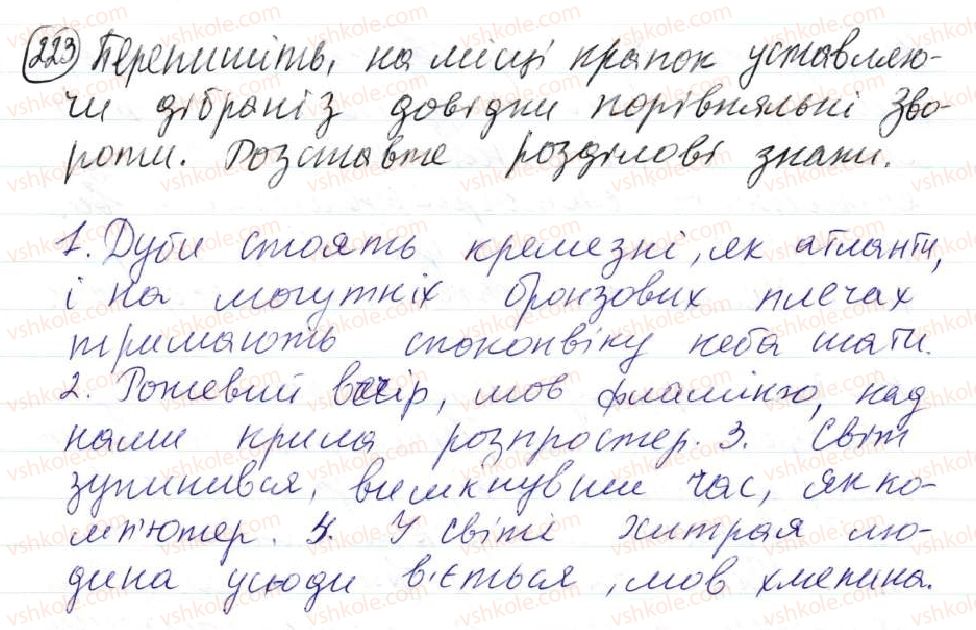 223 Перепишіть, на місці крапок уставляю-
чи дібрані з довідки порівняльні зво-
роти. Розставте розділові знаки.
1. Дуби стоять кремезні, як атланти,
і на могутніх бронзових плечах
тримають споконвіку неба шати.
2. Рожевий вечір, мов фламінго, над
нами крила розпростер. 3. Світ
зупинився, вимкнувши час, як ко-
мп'ютер. 4. У світі хитрая лю-
дина усюди в'ється, мов хмелина.